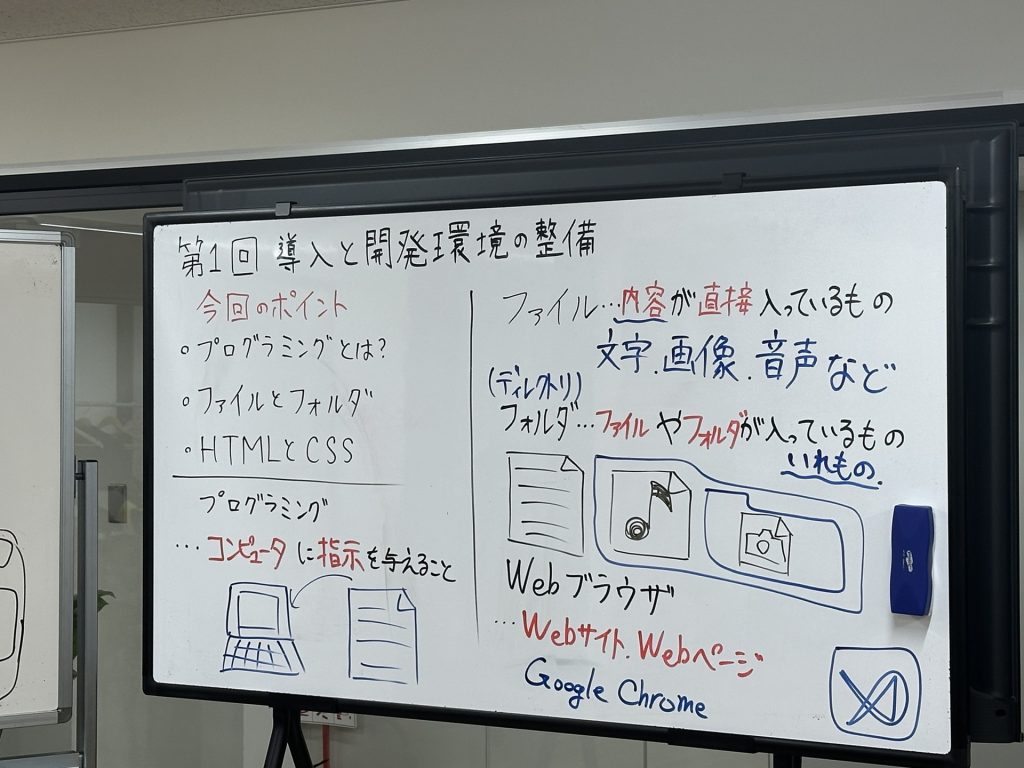 第1回 導入と開発環境の整備
今回のポイント
○プログラミングとは?
○ファイルとフォルダ
○HTMLとCSS
プログラミング
…コンピュータに指示を与えること
ファイル…内容が直接入っているもの
文字.画像.音声など
(ディレクトリ)
フォルダ…ファイルやフォルダが入っているもの
いれもの.
Webブラウザ
…Webサイト.Webページ
Google Chrome